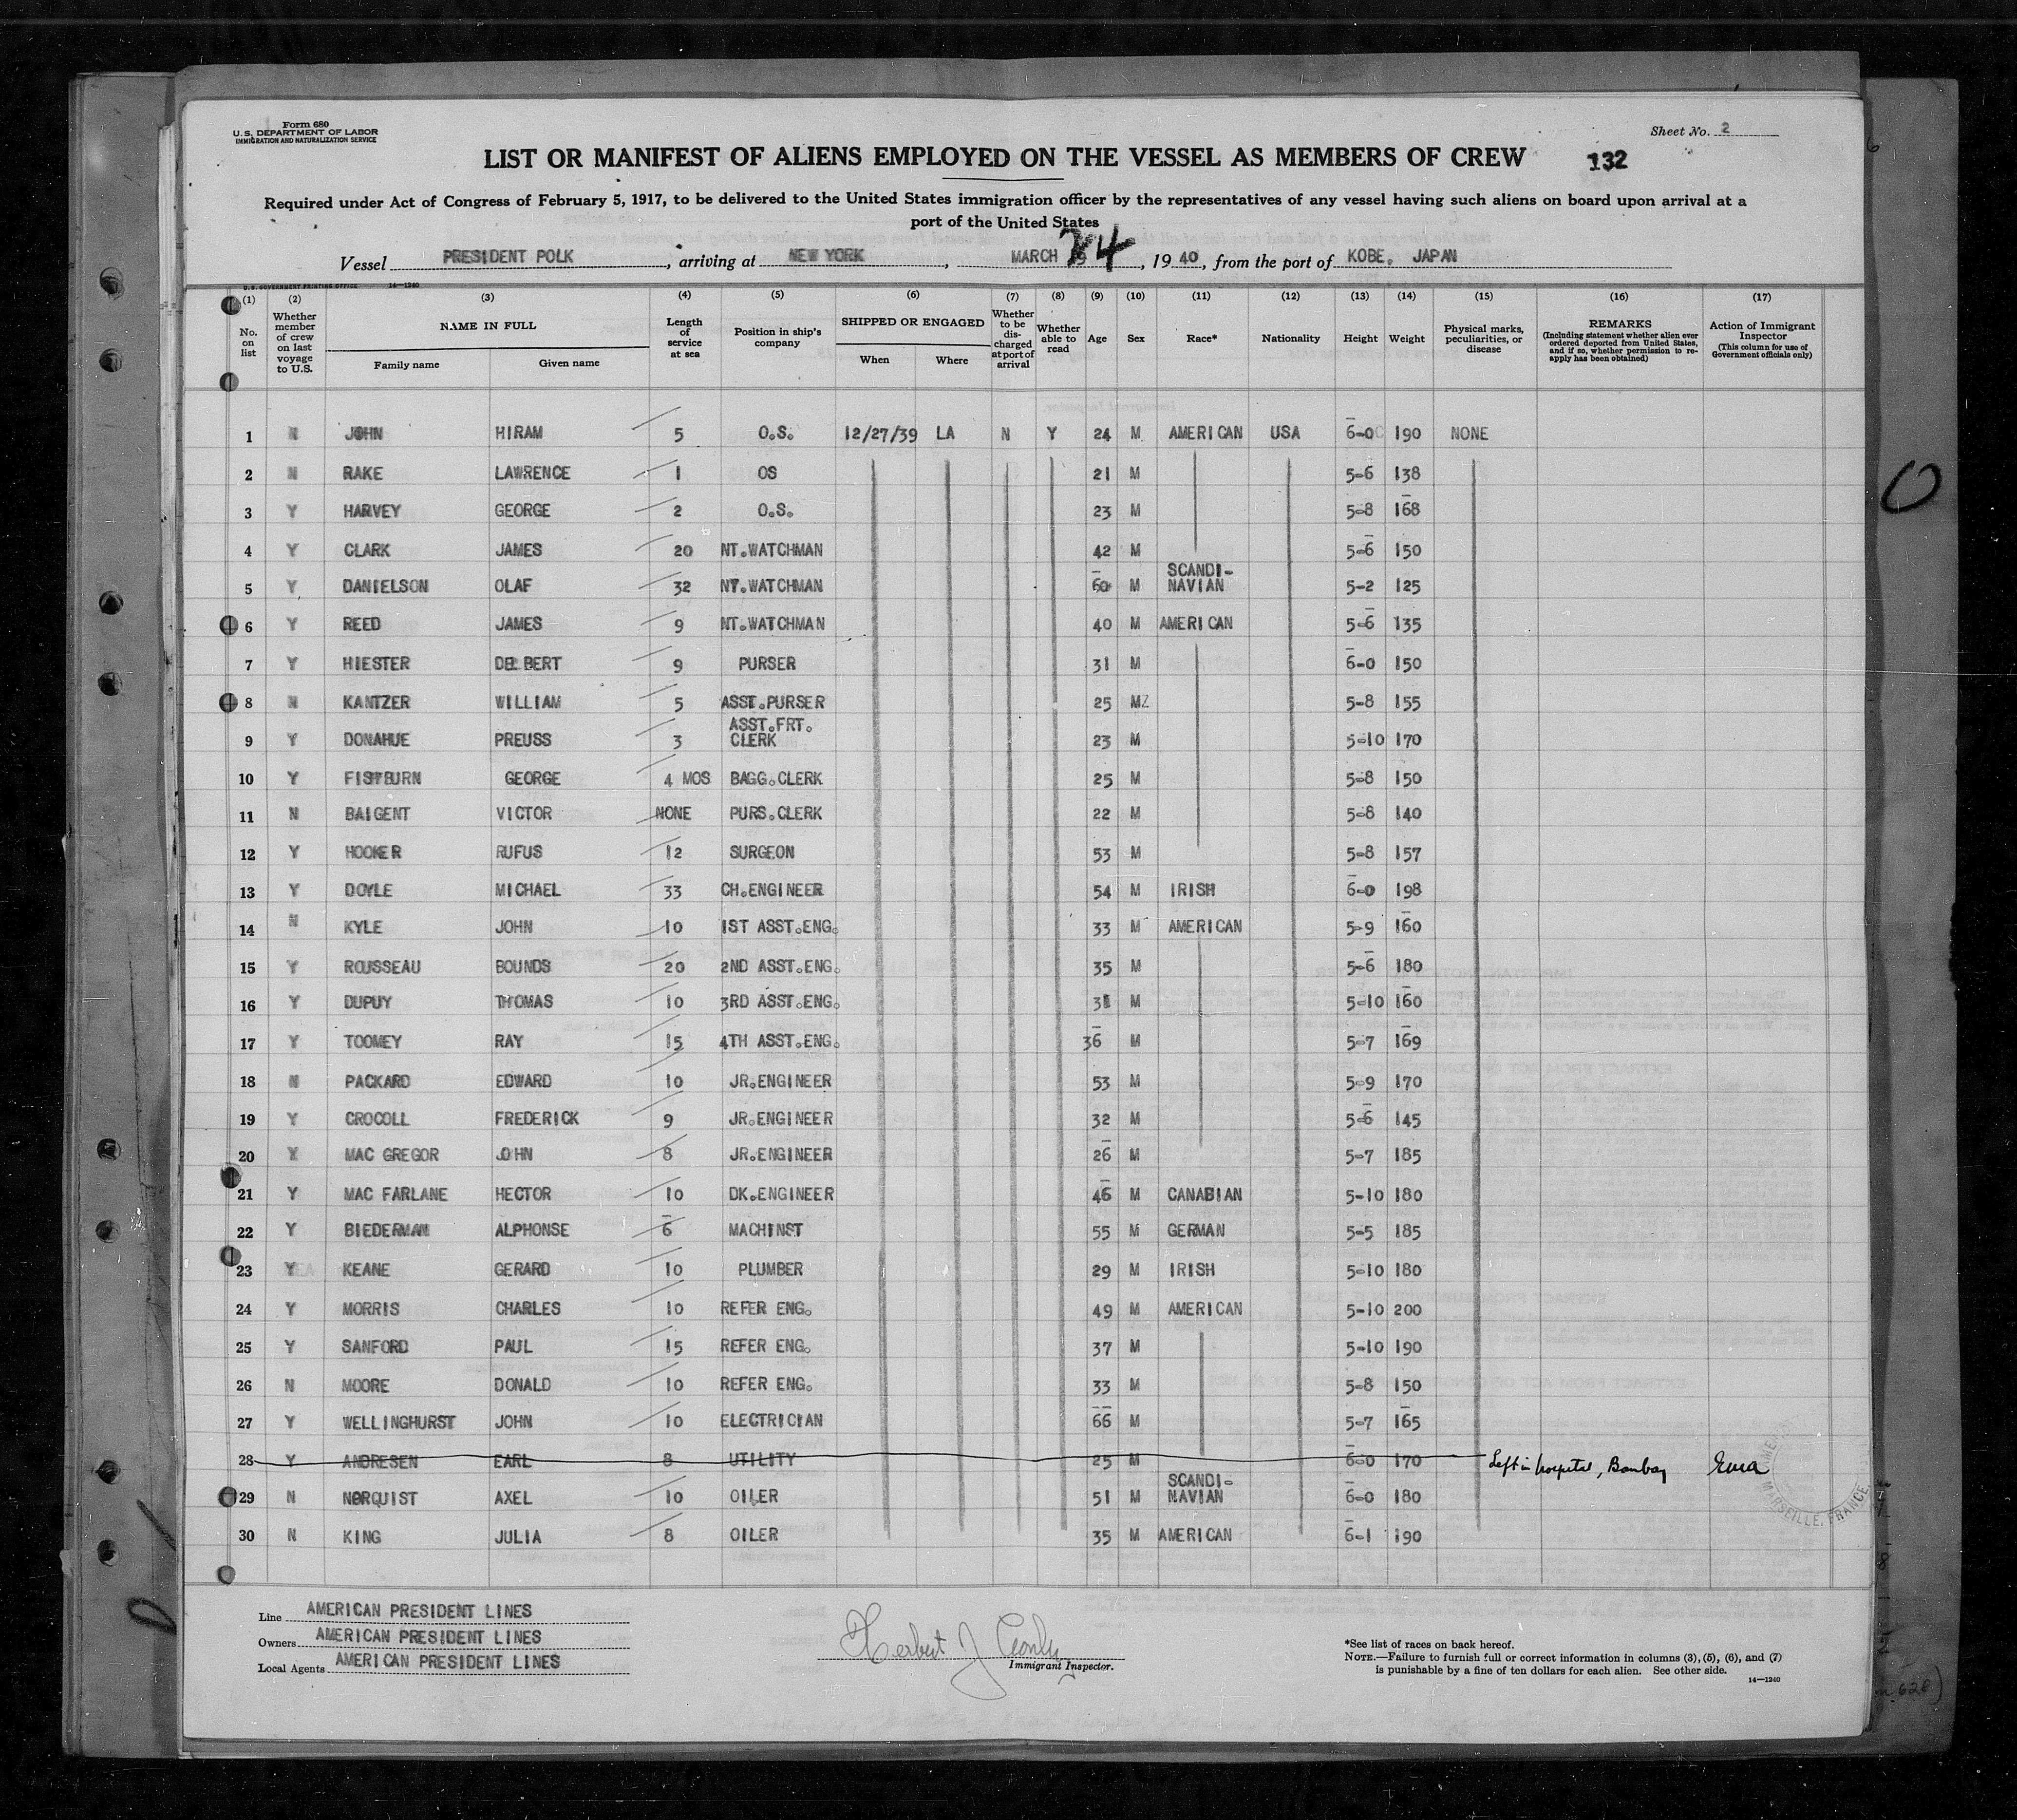 Form 680
U. S. DEPARTMENT OF LABOR
IMMIGRATION AND NATURALIZATION SERVICE
Sheet No. 2
LIST OR MANIFEST OF ALIENS EMPLOYED ON THE VESSEL AS MEMBERS OF CREW 132
Required under Act of Congress of February 5, 1917, to be delivered to the United States immigration officer by the representatives of any vessel having such aliens on board upon arrival at a
port of the United States
Vessel PRESIDENT POLK, arriving at NEW YORK, MARCH 14, 1940, from the port of KOBE, JAPAN
U. S. GOVERNMENT PRINTING OFFICE 14—1240
(1) (2) (3) (4) (5) (6) (7) (8) (9) (10) (11) (12) (13) (14) (15) (16) (17)
No. on list
Whether member of crew on last voyage to U.S.
NAME IN FULL
Family name Given name
Length of service at sea
Position in ship's company
SHIPPED OR ENGAGED
When Where
Whether to be discharged at port of arrival
Whether able to read
Age Sex Race* Nationality Height Weight
Physical marks, peculiarities, or disease
REMARKS
(Including statement whether alien ever ordered deported from United States, and if so, whether permission to reapply has been obtained)
Action of Immigrant Inspector
(This column for use of Government officials only)
1 N JOHN HIRAM 5 O.S. 12/27/39 LA N Y 24 M AMERICAN USA 6-0 190 NONE
2 N RAKE LAWRENCE 1 OS 21 M 5-6 138
3 Y HARVEY GEORGE 2 O.S. 23 M 5-8 168
4 Y CLARK JAMES 20 NT.WATCHMAN 42 M 5-6 150
5 Y DANIELSON OLAF 32 NT.WATCHMAN 60 M SCANDI-NAVIAN 5-2 125
6 Y REED JAMES 9 NT.WATCHMAN 40 M AMERICAN 5-6 135
7 Y HIESTER DELBERT 9 PURSER 31 M 6-0 150
8 N KANTZER WILLIAM 5 ASST.PURSER 25 M 5-8 155
9 Y DONAHUE PREUSS 3 ASST.FRT. CLERK 23 M 5-10 170
10 Y FISHBURN GEORGE 4 MOS BAGG.CLERK 25 M 5-8 150
11 N BAIGENT VICTOR NONE PURS.CLERK 22 M 5-8 140
12 Y HOOKER RUFUS 12 SURGEON 53 M 5-8 157
13 Y DOYLE MICHAEL 33 CH.ENGINEER 54 M IRISH 6-0 198
14 N KYLE JOHN 10 1ST ASST.ENG. 33 M AMERICAN 5-9 160
15 Y ROUSSEAU BOUNDS 20 2ND ASST.ENG. 35 M 5-6 180
16 Y DUPUY THOMAS 10 3RD ASST.ENG. 31 M 5-10 160
17 Y TOOMEY RAY 15 4TH ASST.ENG. 36 M 5-7 169
18 N PACKARD EDWARD 10 JR.ENGINEER 53 M 5-9 170
19 Y CROCOLL FREDERICK 9 JR.ENGINEER 32 M 5-6 145
20 Y MAC GREGOR JOHN 8 JR.ENGINEER 26 M 5-7 185
21 Y MAC FARLANE HECTOR 10 DK.ENGINEER 46 M CANADIAN 5-10 180
22 Y BIEDERMAN ALPHONSE 6 MACHINST 55 M GERMAN 5-5 185
23 Y KEANE GERARD 10 PLUMBER 29 M IRISH 5-10 180
24 Y MORRIS CHARLES 10 REFER ENG. 49 M AMERICAN 5-10 200
25 Y SANFORD PAUL 15 REFER ENG. 37 M 5-10 190
26 N MOORE DONALD 10 REFER ENG. 33 M 5-8 150
27 Y WELLINGHURST JOHN 10 ELECTRICIAN 66 M 5-7 165
28 Y ANDRESEN EARL 8 UTILITY 25 M 6-0 170 Left in hospital, Bombay
29 N NORQUIST AXEL 10 OILER 51 M SCANDI-NAVIAN 6-0 180
30 N KING JULIA 8 OILER 35 M AMERICAN 6-1 190
MARSEILLE, FRANCE
Line AMERICAN PRESIDENT LINES
Owners AMERICAN PRESIDENT LINES
Local Agents AMERICAN PRESIDENT LINES
Herbert J
Immigrant Inspector.
*See list of races on back hereof.
NOTE.—Failure to furnish full or correct information in columns (3), (5), (6), and (7)
is punishable by a fine of ten dollars for each alien. See other side.
14—1240